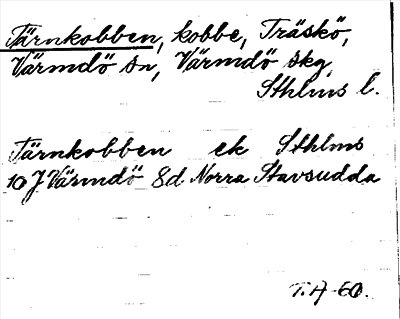 Tärnkobben, kobbe, Träskö,
Värmdö sn, Värmdö skg,
Sthlms l.
Tärnkobben ek Sthlms
10 J Värmdö 8d Norra Stavsudda
T.A-60.